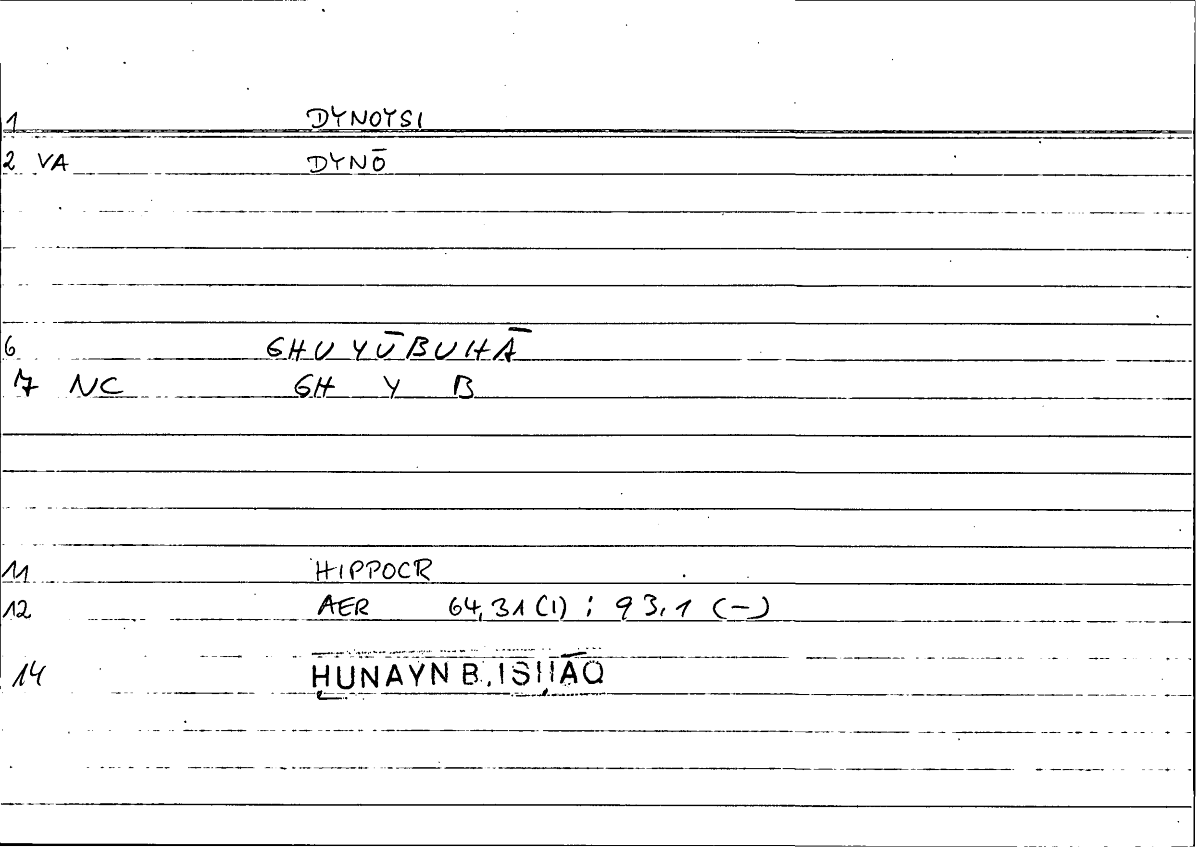 1 DYNOYSI
2 VA DYNŌ
6 GHUYŪBUHĀ
7 NC GH Y B
11 HIPPOCR
12 AER 64,31 (1) ; 93,1 (–)
14 ḤUNAYN B. ISḤĀQ